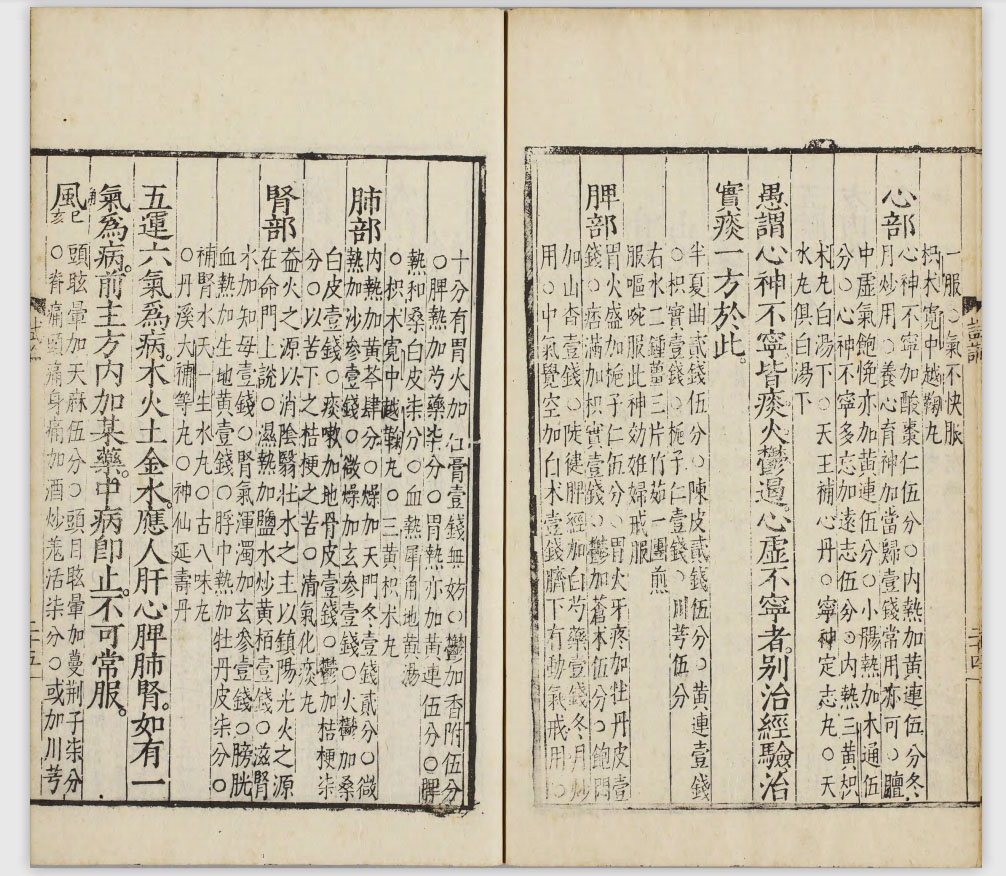 一服○氣不快脹
枳朮寬中越鞠丸
心部
心神不寧加酸棗仁伍分○內熱加黃連伍分冬
月炒用○養心育神加當歸壹錢常用亦可○膻
中虛氣飽悗亦加黃連伍分○小腸熱加木通伍
分○心神不寧多忘加遠志伍分○內熱三黃枳
朮丸白湯下○天王補心丹○寧神定志丸○天
水丸俱白湯下
愚謂心神不寧皆痰火鬱遏心虛不寧者別治經驗治
實痰一方於此
半夏曲貳錢伍分○陳皮貳錢伍分○黃連壹錢
○枳實壹錢○梔子仁壹錢○川芎伍分
右水二鍾薑三片竹茹一團煎
服嘔啘服此神効妊婦戒服
脾部
胃火盛加梔子仁伍分○胃火牙疼加牡丹皮壹
錢○痞滿加枳實壹錢○鬱加蒼朮伍分○飽悶
加山杳壹錢○陡徒脾經加白芍藥壹錢冬月炒
用○中氣覺空加白朮壹錢臍下有動氣戒用○
二十四
十分有胃火加石膏壹錢無妨○鬱加香附伍分
○脾熱加芍藥柒分○胃熱亦加黃連伍分○脾
熱和桑白皮柒分○血熱犀角地黃湯
○枳朮寬中越鞠丸○三黃枳朮丸
肺部
內熱加黃芩肆分○燥加天門冬壹錢貳分○微
熱加沙參壹錢○微燥加玄參壹錢○火鬱加桑
白皮壹錢○痰嗽加地丹皮壹錢○鬱加桔梗柒
分○以苦下之桔梗之苦○清氣化痰丸
腎部
益火之源以消陰翳壯水之主以鎮陽光火之源
在命門上說○濕熱加鹽水炒黃栢壹錢○滋腎
水加知母壹錢○腎氣渾濁加玄參壹錢○膀胱
血熱加生地黃壹錢○脬中熱加牡丹皮柒分○
補腎水天一生水丸○古八味丸
○丹溪大補等丸○神仙延壽丹
五運六氣為病木火土金水應人肝心脾肺腎如有一
氣為病前主方內加某藥中病即止不可常服
風
巳亥
頭眩暈加天麻伍分○頭目眩暈加蔓荊子柒分
○脊痛頭痛身痛加酒炒羌活柒分○或加川芎
二十五